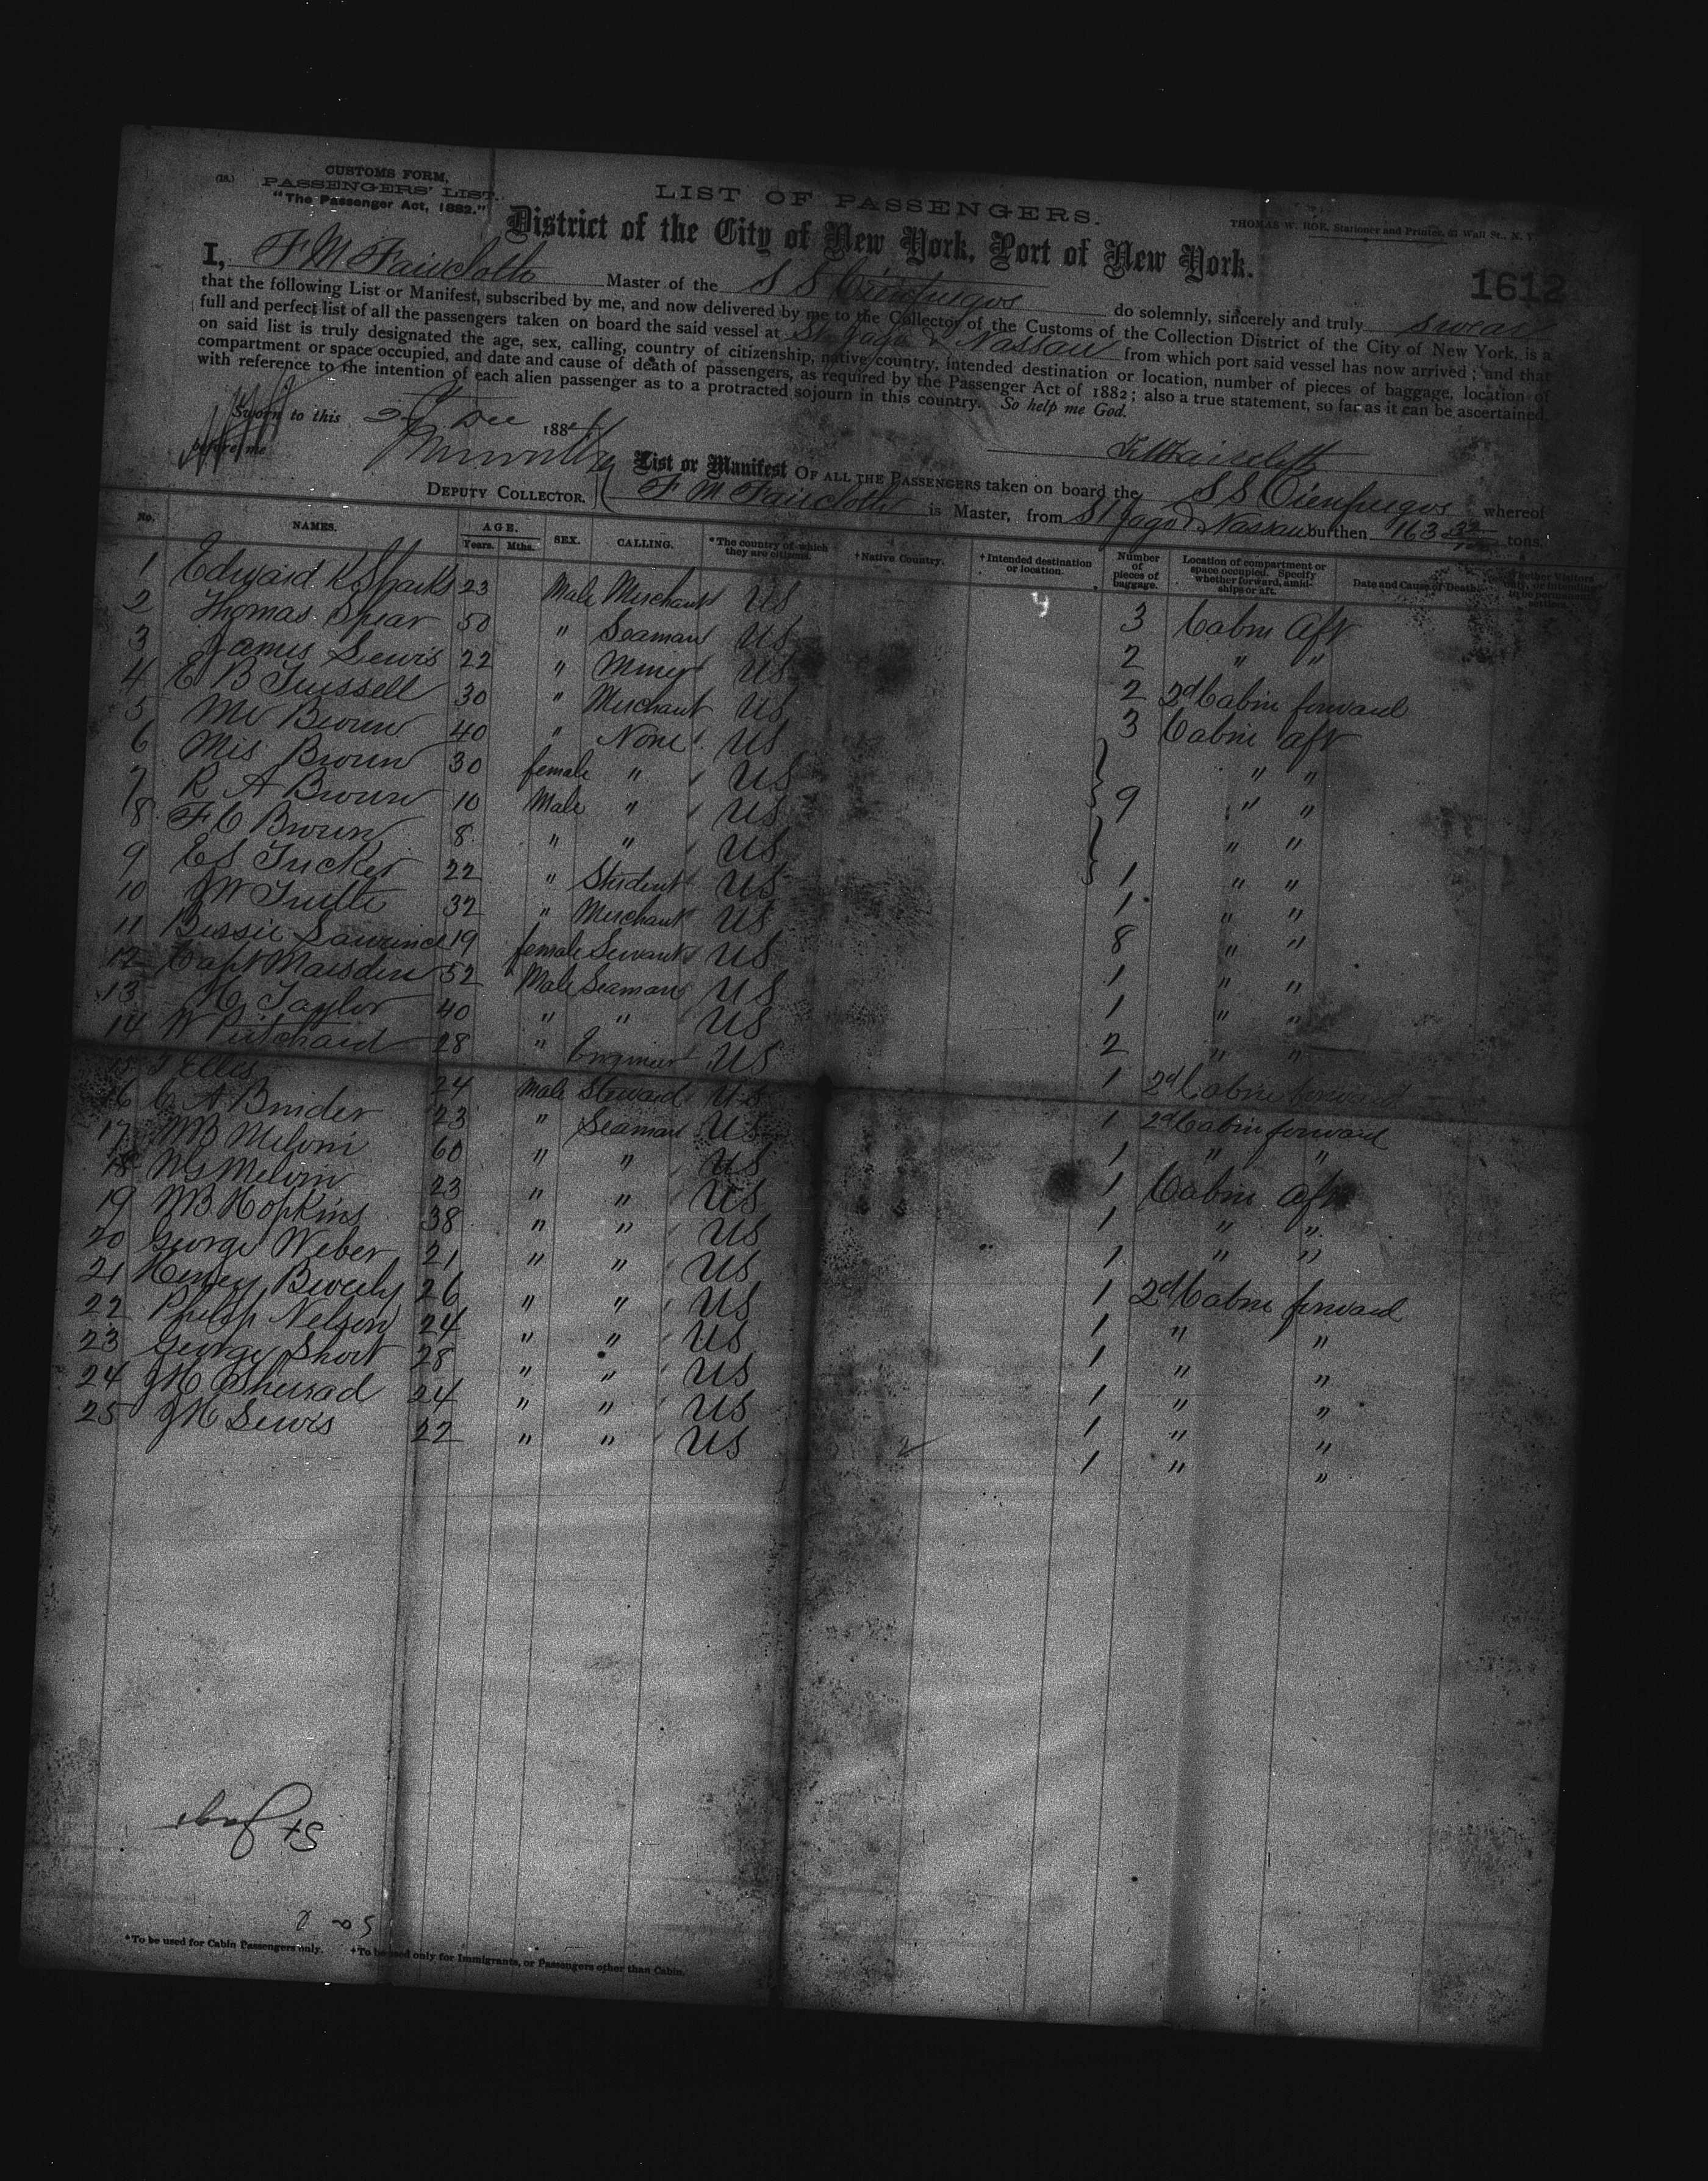 (18.)
CUSTOMS FORM,
PASSENGERS' LIST.
"The Passenger Act, 1882."
LIST OF PASSENGERS.
THOMAS W. HOE, Stationer and Printer, 67 Wall St., N. Y.
District of the City of New York, Port of New York.
1612
I, F M Faircloth Master of the S S Cienfuegos do solemnly, sincerely and truly swear
that the following List or Manifest, subscribed by me, and now delivered by me to the Collector of the Customs of the Collection District of the City of New York, is a
full and perfect list of all the passengers taken on board the said vessel at St Jago & Nassau from which port said vessel has now arrived; and that
on said list is truly designated the age, sex, calling, country of citizenship, native country, intended destination or location, number of pieces of baggage, location of
compartment or space occupied, and date and cause of death of passengers, as required by the Passenger Act of 1882; also a true statement, so far as it can be ascertained,
with reference to the intention of each alien passenger as to a protracted sojourn in this country. So help me God.
Sworn to this Dec 188
before me
F M Faircloth
DEPUTY COLLECTOR.
List or Manifest OF ALL THE PASSENGERS taken on board the S S Cienfuegos whereof
F M Faircloth is Master, from St Jago & Nassau burthen tons.
No. NAMES. AGE. Years. Mths. SEX. CALLING. *The country of which they are citizens. †Native Country. †Intended destination or location. Number of pieces of baggage. Location of compartment or space occupied. Specify whether forward, amidships or aft. Date and Cause of Death.
1 Edward K Sparks 23 Male Merchant US 3 Cabin Aft
2 Thomas Spear 50 " Seaman US 2 " "
3 James Lewis 22 " Miner US 2 2d Cabin forward
4 E B Trussell 30 " Merchant US 3 Cabin aft
5 Mr Brown 40 " None US " "
6 Mrs Brown 30 female " US 9 " "
7 R A Brown 10 Male " US " "
8 F C Brown 8 " " US 1 " "
9 E S Tucker 22 " Student US 1 " "
10 J W 32 " Merchant US 8 " "
11 Bessie Lawrence 19 female Servant US 1 " "
12 Capt Marsden 52 Male Seaman US 1 " "
13 H Taylor 40 " " US 2 " "
14 W Pritchard 28 " Engineer US 1 2d Cabin forward
15 Ellis 24 Male Steward US 1 2d Cabin forward
16 C A Brider 23 " Seaman US 1 " "
17 W B Melvin 60 " " US 1 Cabin aft
18 W G Melvin 23 " " US 1 " "
19 W B Hopkins 38 " " US 1 " "
20 George Weber 21 " " US 1 2d Cabin forward
21 Henry Beverly 26 " " US 1 " "
22 Philip Nelson 24 " " US 1 " "
23 George Short 28 " " US 1 " "
24 J H Sherrad 24 " " US 1 " "
25 J H Lewis 22 " " US 1 " "
St Jago
*To be used for Cabin Passengers only. †To be used only for Immigrants, or Passengers other than Cabin.